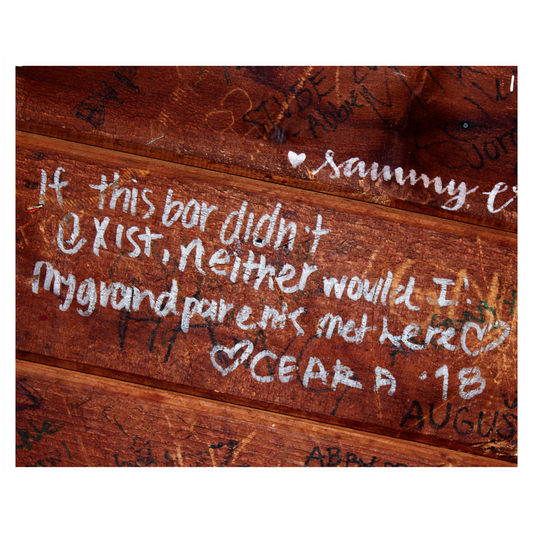 Abbey
♥ sammy
If this bar didn't
exist, neither would I!
My grandparents met here ♡
♡ CEARA '18
AUGUS
ABBY